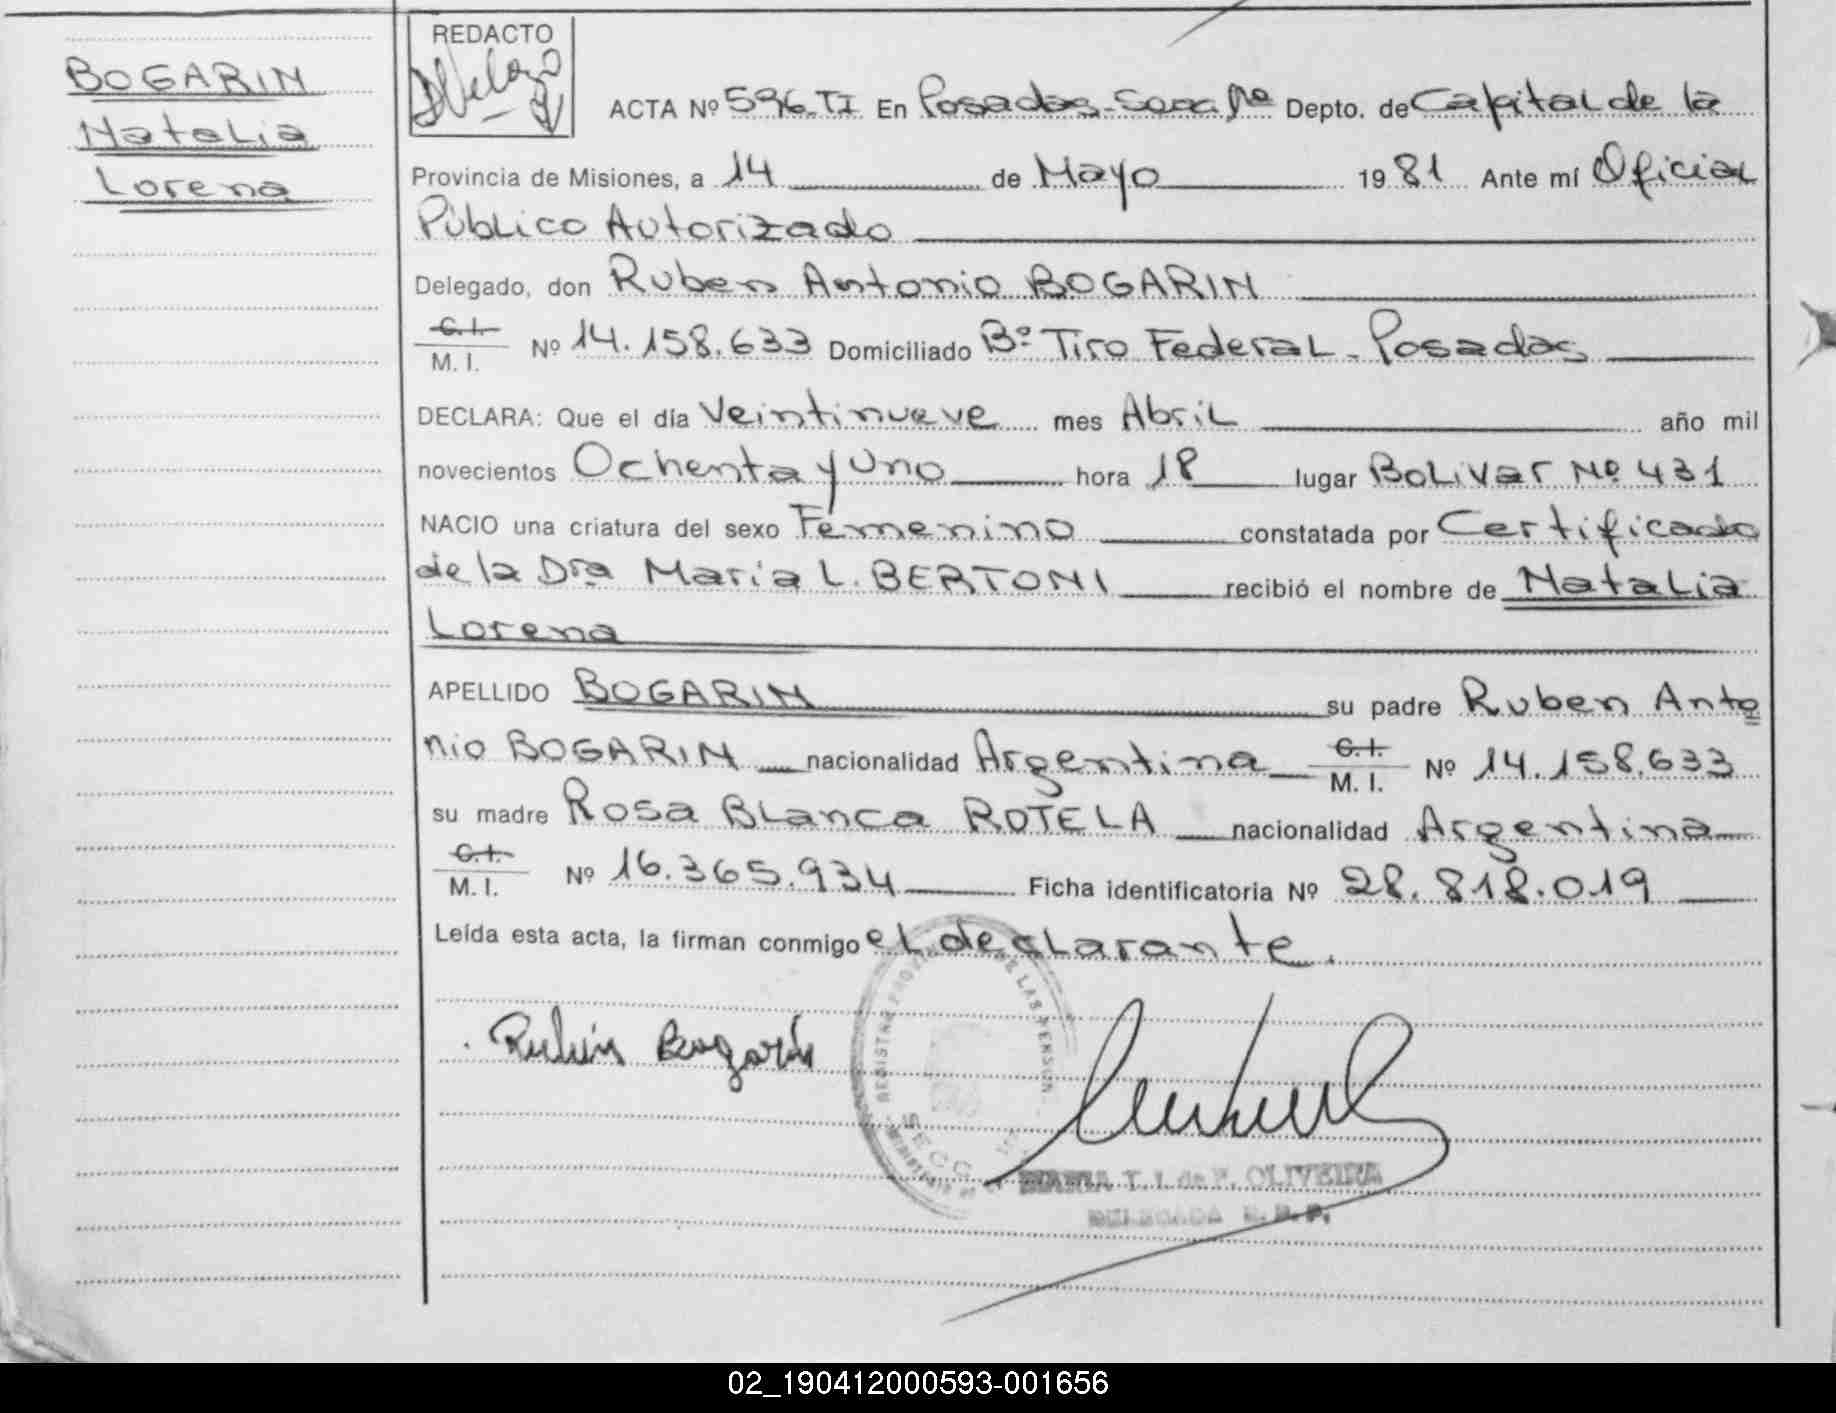 BOGARIN
Natalia
Lorena
REDACTO
ACTA Nº 596.TI En Posadas-Secc 1ª Depto. de Capital de la
Provincia de Misiones, a 14 de Mayo 1981 Ante mí Oficial
Público Autorizado
Delegado, don Ruben Antonio BOGARIN
C.I. M.I. Nº 14.158.633 Domiciliado Bº Tiro Federal-Posadas
DECLARA: Que el día Veintinueve mes Abril año mil
novecientos Ochenta y Uno hora 18 lugar Bolivar Nº 431
NACIO una criatura del sexo Femenino constatada por Certificado
de la Dra Maria L. BERTONI recibió el nombre de Natalia
Lorena
APELLIDO BOGARIN su padre Ruben Anto
nio BOGARIN nacionalidad Argentina C.I. M.I. Nº 14.158.633
su madre Rosa Blanca ROTELA nacionalidad Argentina
C.I. M.I. Nº 16.365.934 Ficha identificatoria Nº 28.818.019
Leída esta acta, la firman conmigo el declarante.
Rubén Bogarín
REGISTRO DE LAS PERSON
SECC
MARIA T. I. de F. OLIVEIRA
DELEGADA R.P.P.
02_190412000593-001656